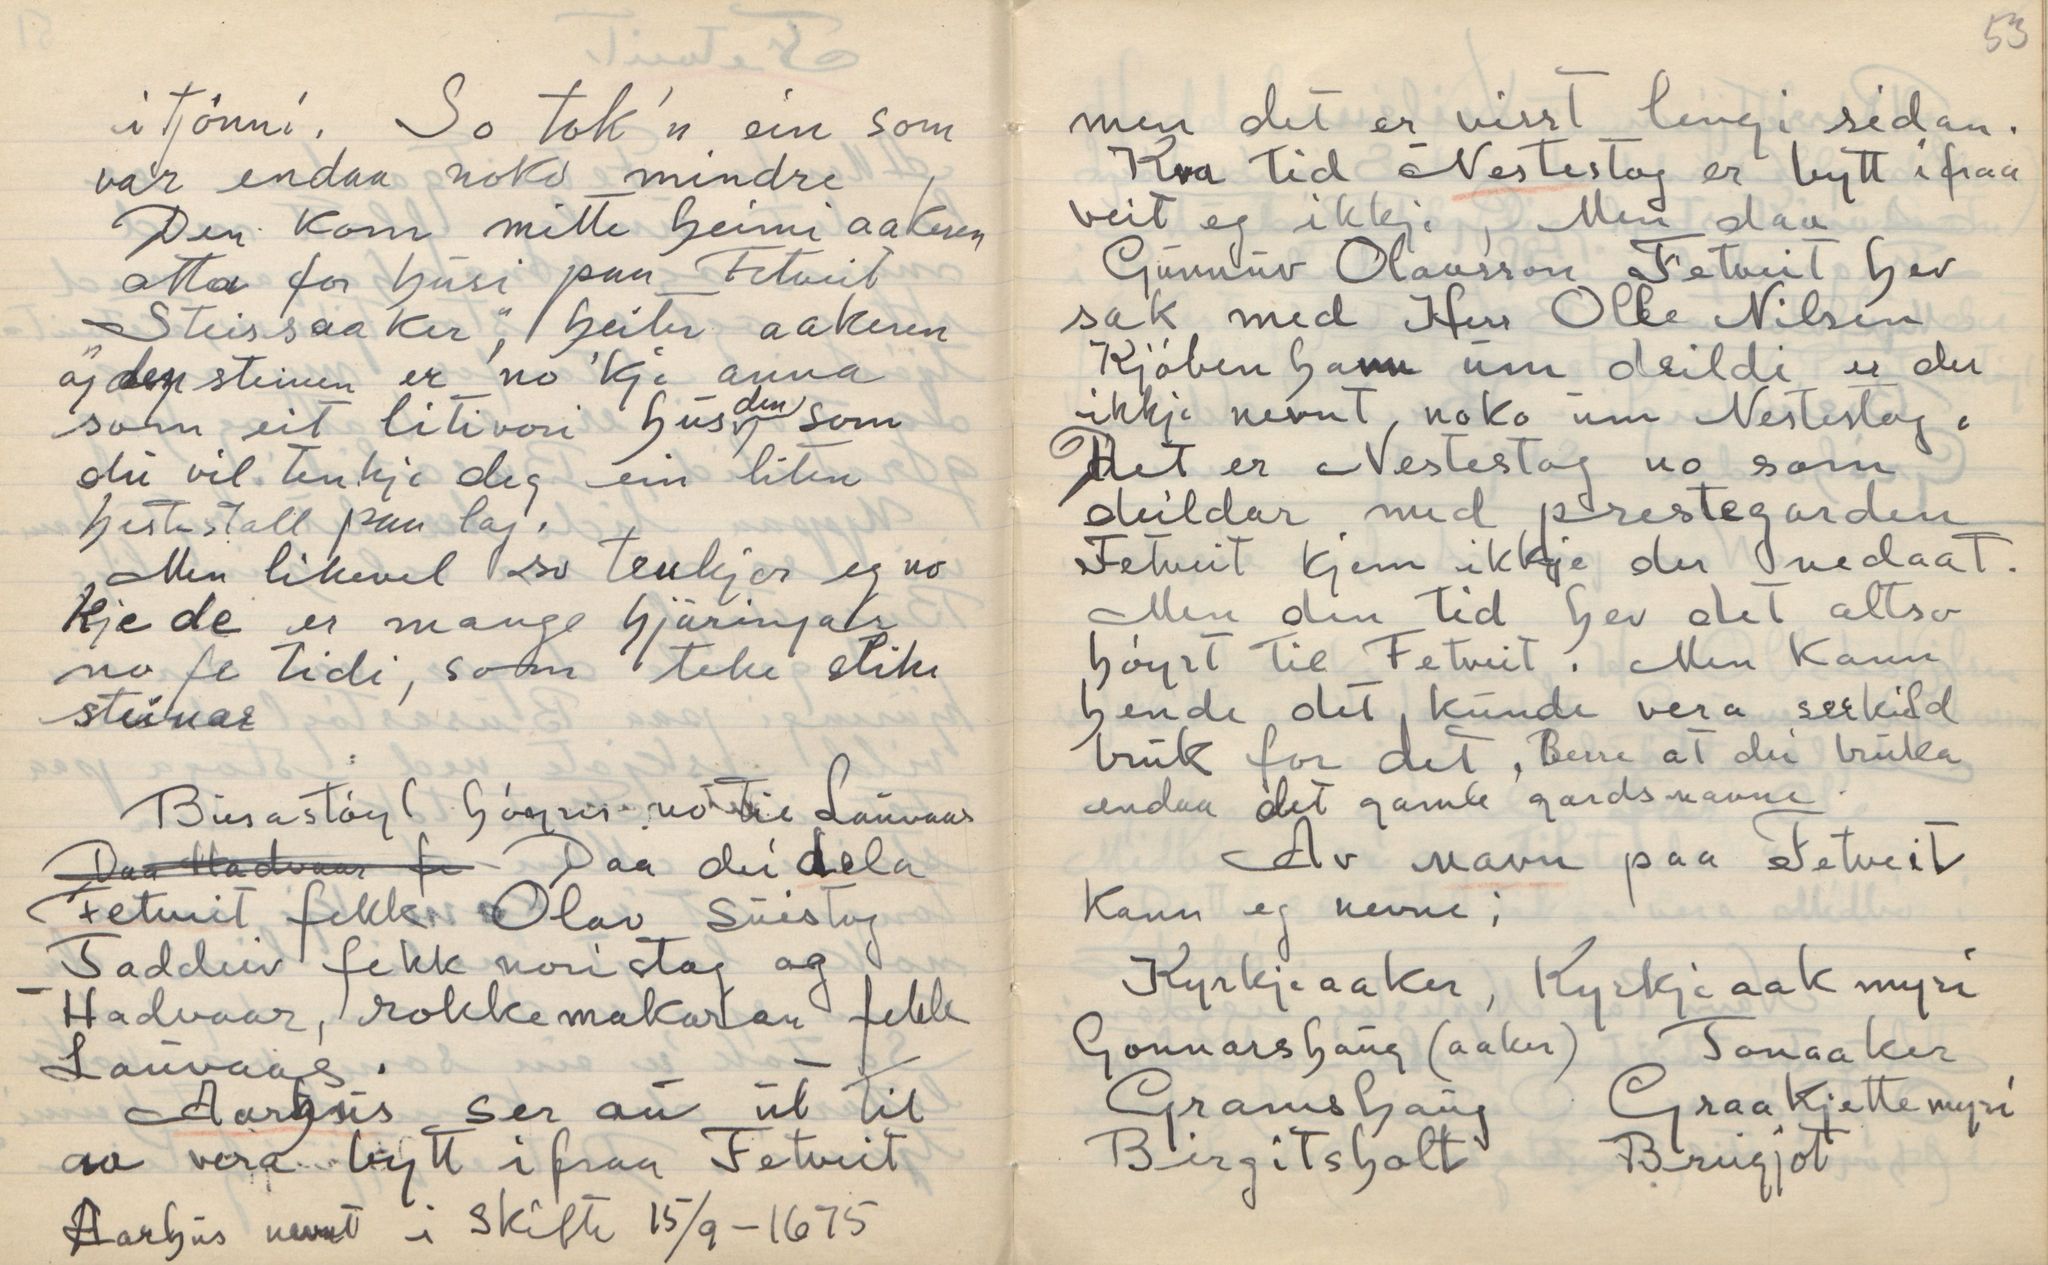 i tjönni. So tok'n ein som
var endaa noko mindre,
Den kom mitte heimi aakeren
atta for husi paa Fetveit
"Steissaaker", heiter aakeren
og den steinen er no 'kje anna
som eit litivori hus, den som
du vil tenkje deg ein liten
hestestall paa lag.
Men likevel so tenkjer eg no
kje de er mange kjæringar
no fe tidi, som teke slike
steinar
Busastöyl höyrer no til Lauvaas
Daa Hadvaar fe Daa dei dela
Fetveit fekk Olav Suistog
Taddeiv fekk noristog og
Hadvaar, rokkemakaran fekk
Lauvaas.
Aarhus ser au ut til
aa vera bytt ifraa Fetveit
Aarhus nevnt i skifte 15/9-1675
53
men det er visst lengi sidan.
Kva tid Nestestog er bytt ifraa
veit eg ikkje, Men daa
Gunnuv Olavsson Fetveit hev
sak med Herr Olle Nilsen
Kjöbenhavn um deildi er der
ikkje nevnt noko um Nestestog.
Det er Nestestog no som
deildar med prestegarden
Fetveit kjem ikkje der nedaat.
Men den tid hev det altso
höyrt til Fetveit. Men kann
hende det kunde vera serkild
bruk for det, Berre at dei bruka
endaa det gamle gardsnavne.
Av navn paa Fetveit
kann eg nevne;
Kyrkjeaaker, Kyrkjeaakmyri
Gonnarshaug (aaker) Tonaaker
Gramshaug Graakjettemyri
Birgitsholt Brugjot